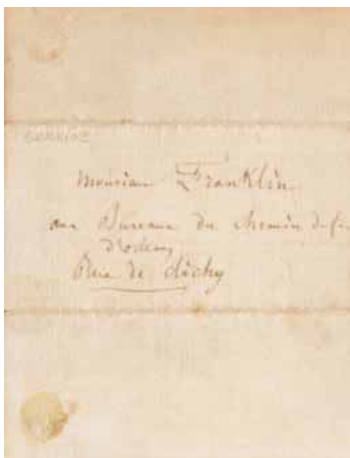 BERLIOZ
Monsieur Franklin
aux Bureaux du chemin de fe
d'orleans
Rue de clichy